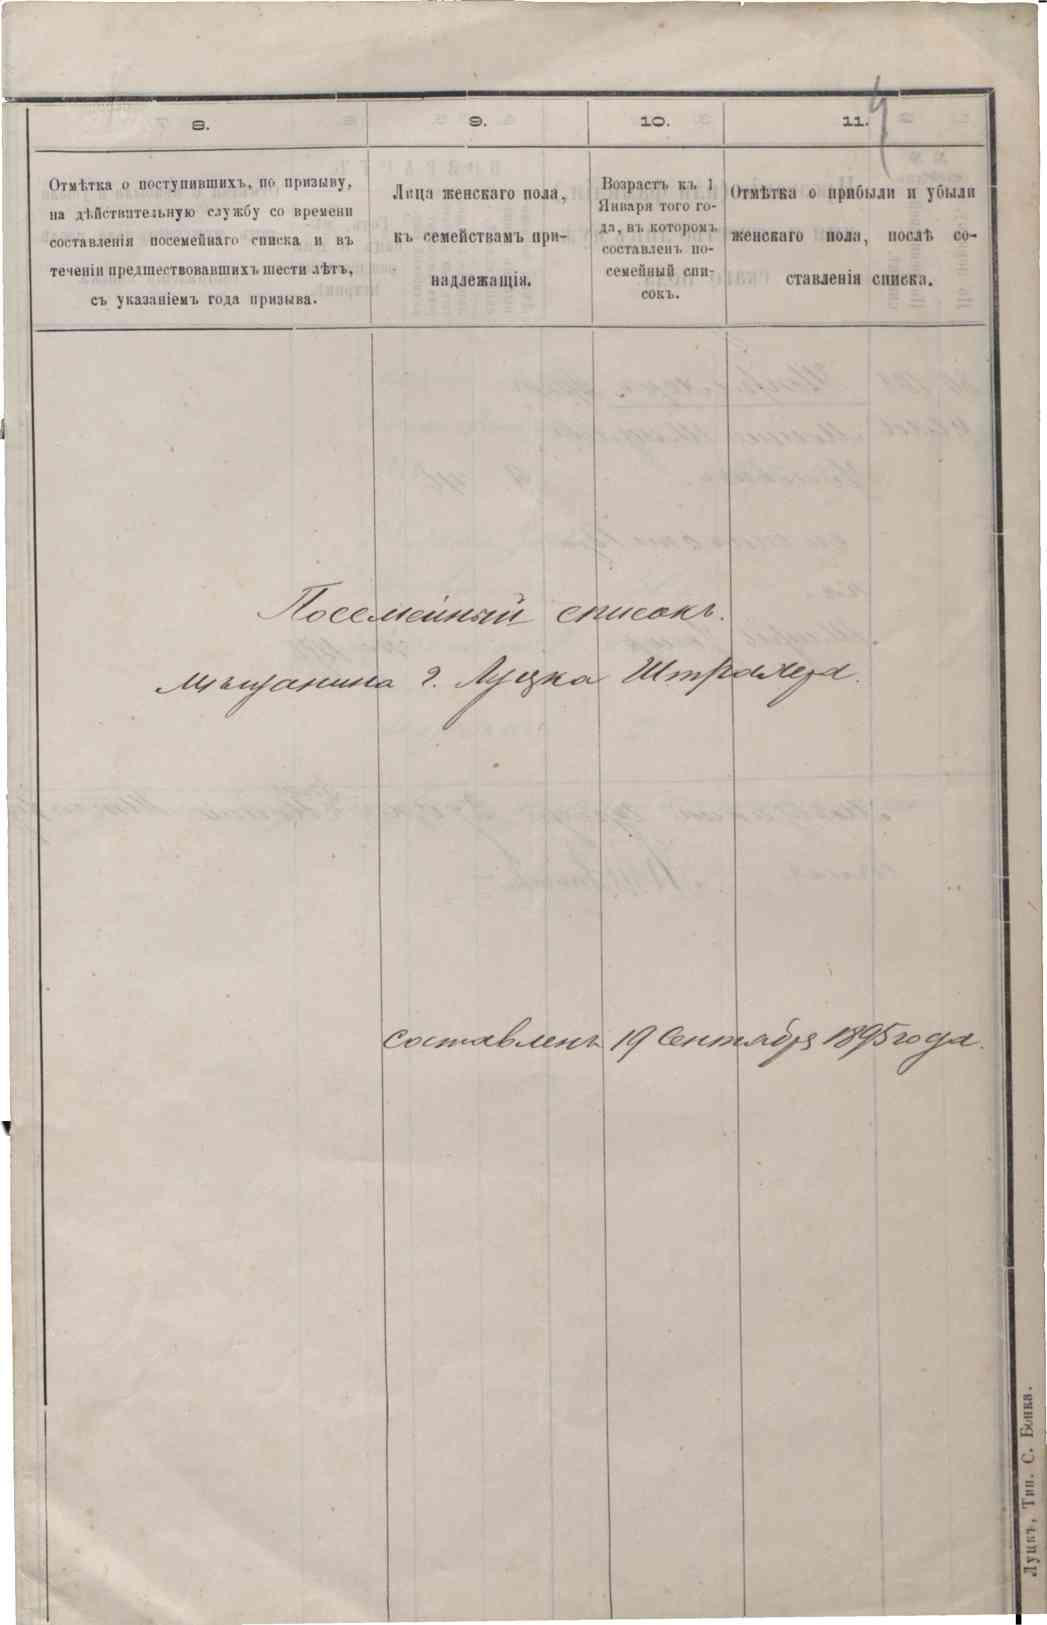 4
8.
9.
10.
11.
Отмѣтка о поступившихъ, по призыву,
на дѣйствительную службу со времени
составленія посемейнаго списка и въ
теченіи предшествовавшихъ шести лѣтъ,
съ указаніемъ года призыва.
Лица женскаго пола,
къ семействамъ при-
надлежащія.
Возрастъ къ 1
Января того го-
да, въ которомъ
составленъ по-
семейный спи-
сокъ.
Отмѣтка о прибыли и убыли
женскаго пола, послѣ со-
ставленія списка.
Посемейный списокъ.
мѣщанина г. Луцка
составленъ 19 Сентября 1895 года.
Луцкъ, Тип. С. Бонка.